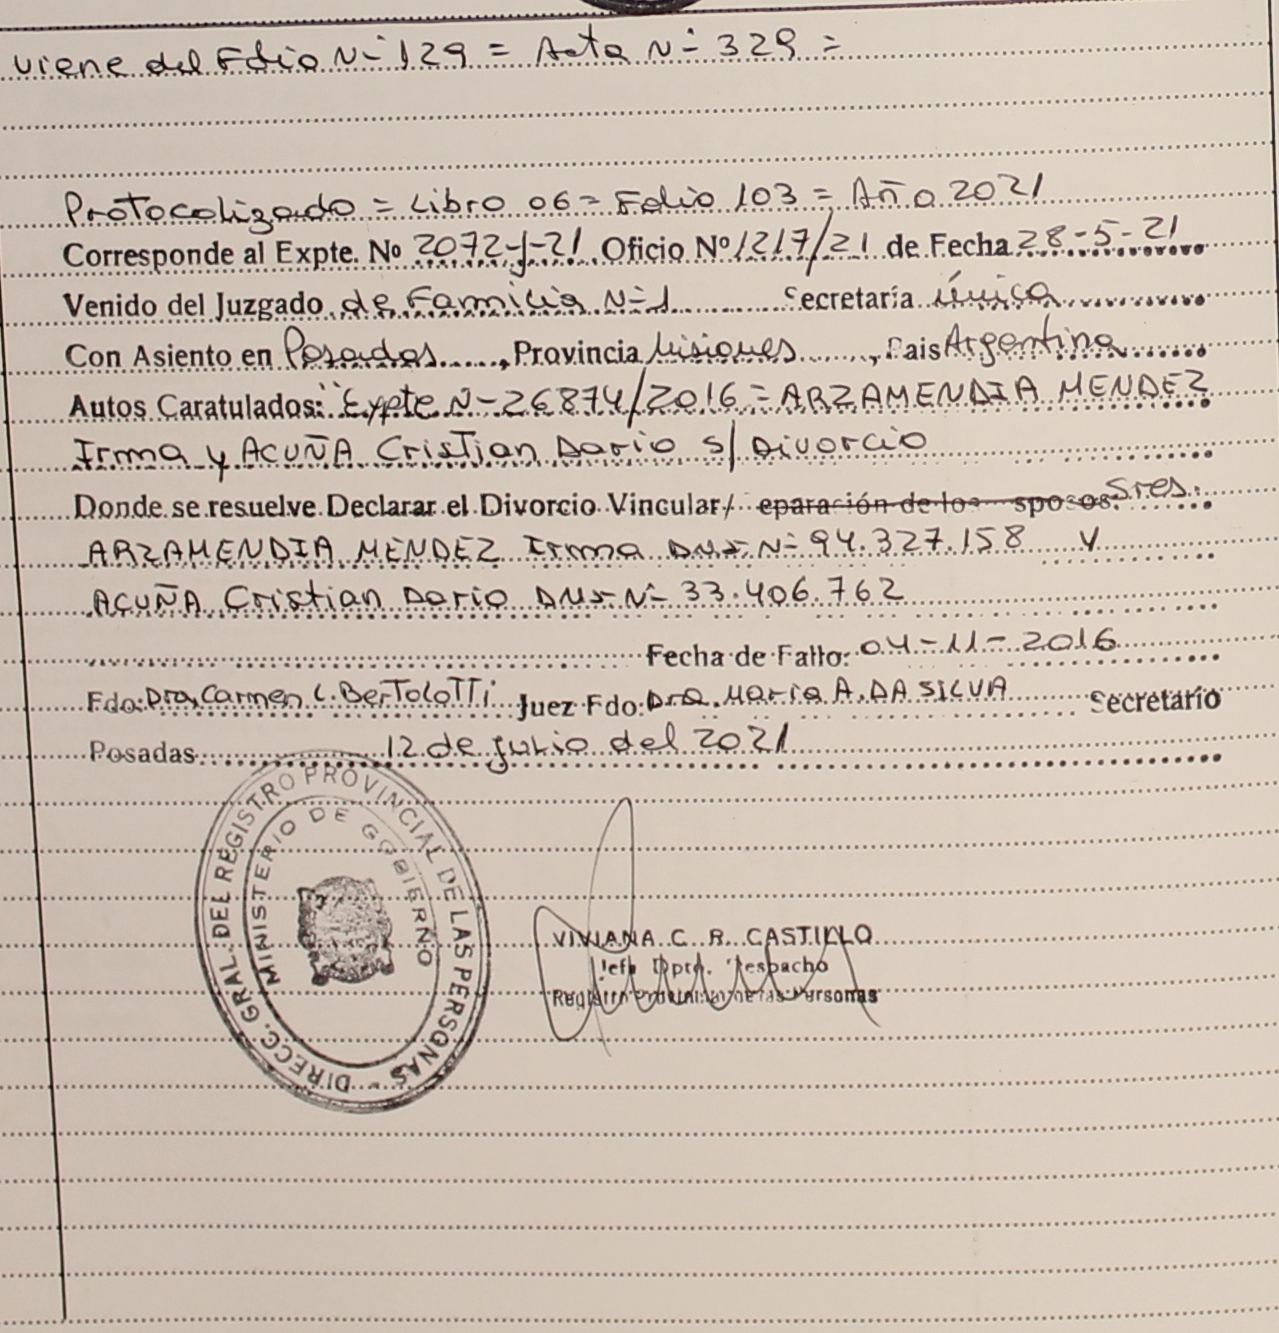 viene del Folio N- 129 = Acta N- 329 =
Protocolizado = Libro 06 = Folio 103 = Año 2021
Corresponde al Expte. Nº 2072-J-21 Oficio Nº 1217/21 de Fecha 28-5-21
Venido del Juzgado de Familia N-1 Secretaría única
Con Asiento en Posadas, Provincia Misiones, Pais Argentina
Autos Caratulados: "Expte N-26874/2016 = ARZAMENDIA MENDEZ
Irma y ACUÑA Cristian Dario s/ Divorcio
Donde se resuelve Declarar el Divorcio Vincular/ eparación de los sposos. Sres.
ARZAMENDIA MENDEZ Irma DNI N- 94.327.158 y
ACUÑA Cristian Dario DNI N- 33.406.762
Fecha de Fallo: 04-11-2016
Fdo: Dra. Carmen L. BerTolotti Juez Fdo: Dra. Maria A. DA SILVA Secretario
Posadas 12 de julio del 2021
DIRECC. GRAL. DEL REGISTRO PROVINCIAL DE LAS PERSONAS -
MINISTERIO DE GOBIERNO
VIVIANA C. R. CASTILLO
Jefe Dpto. Despacho
Registro Provincial de las Personas